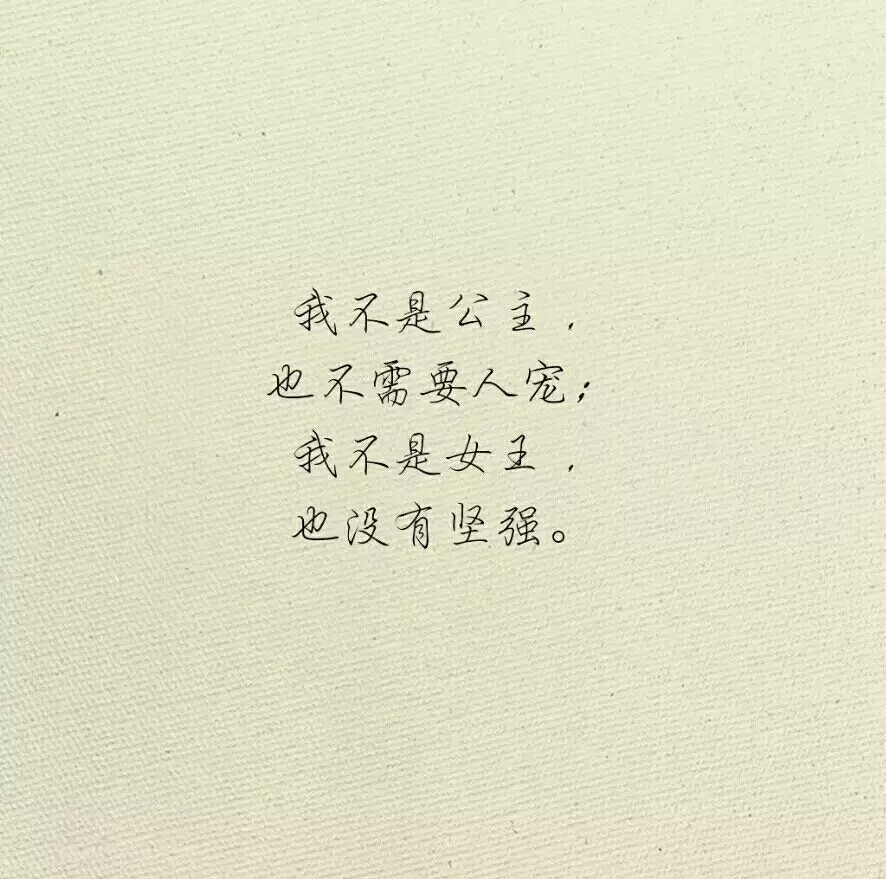 我不是公主，
也不需要人宠；
我不是女王，
也没有坚强。